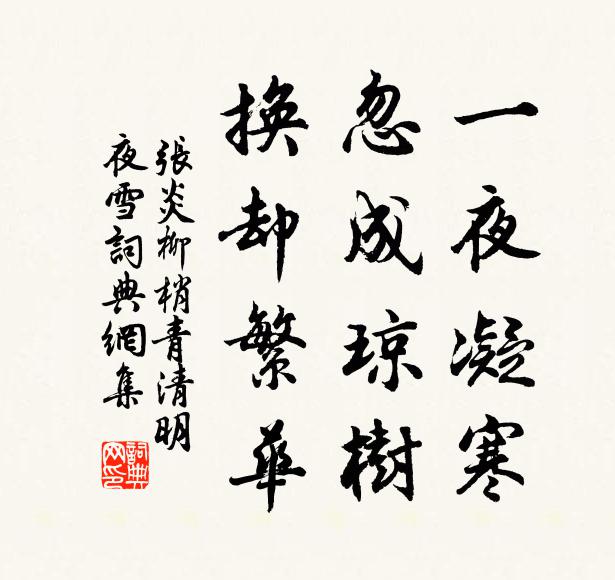 一夜凝寒
忽成琼樹
換却繁華
張炎柳梢青清明
夜雪詞典網集
詞典
网印